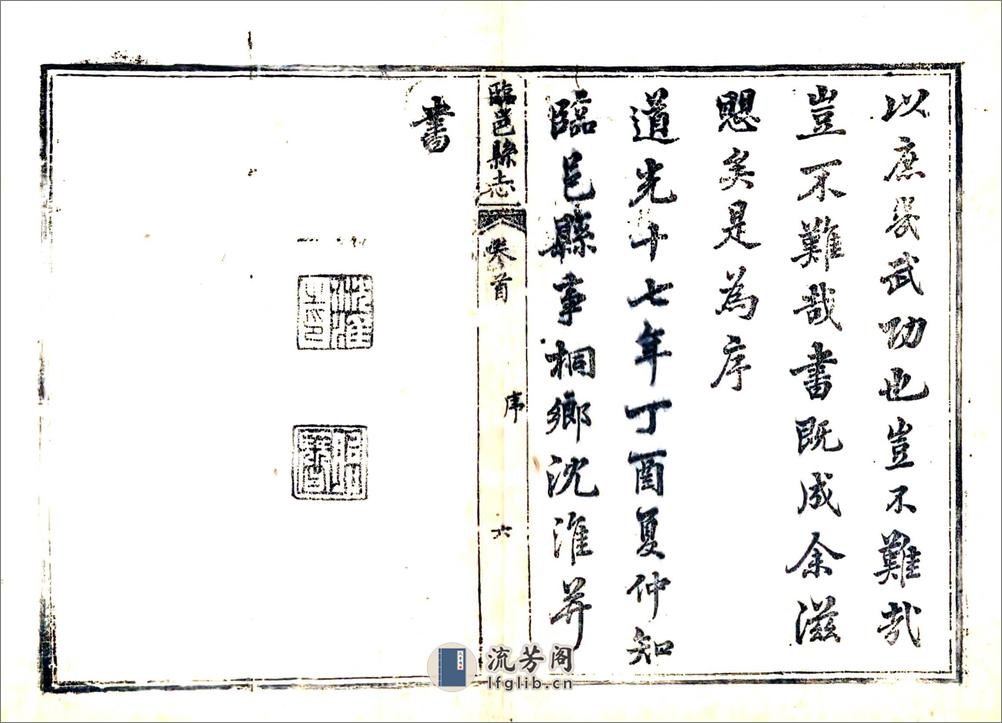 以庶幾武功也豈不難哉
豈不難哉書既成余滋
愳矣是為序
道光十七年丁酉夏仲知
臨邑縣事桐鄉沈淮并
臨邑縣志
卷首
序
六
書
沈淮之印
流芳阁
lfglib.cn